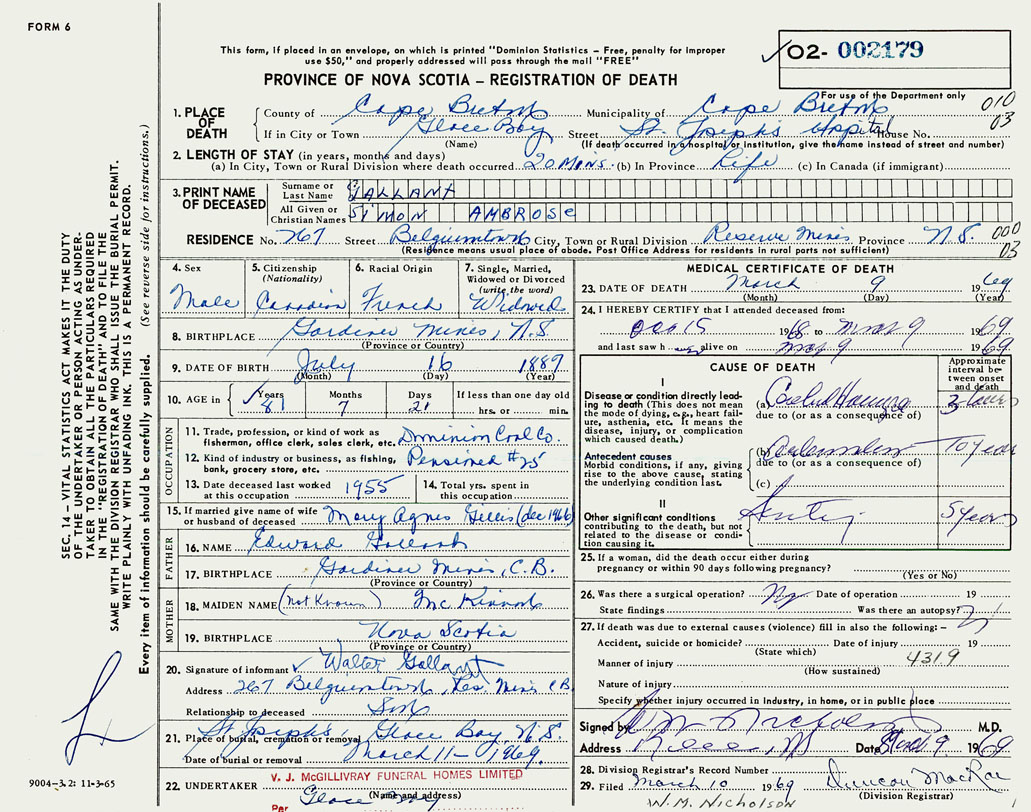 FORM 6
This form, if placed in an envelope, on which is printed "Dominion Statistics – Free, penalty for improper
use $50," and properly addressed will pass through the mail "FREE"
02- 002179
For use of the Department only
PROVINCE OF NOVA SCOTIA – REGISTRATION OF DEATH
010
03
1. PLACE OF DEATH
County of Cape Breton Municipality of Cape Breton
If in City or Town Glace Bay Street St. Joseph's Hospital House No.
(Name) (If death occurred in a hospital or institution, give the name instead of street and number)
2. LENGTH OF STAY (in years, months and days)
(a) In City, Town or Rural Division where death occurred 20 Mins. (b) In Province Life (c) In Canada (if immigrant)
3. PRINT NAME OF DECEASED
Surname or Last Name GALLANT
All Given or Christian Names SIMON AMBROSE
RESIDENCE No. 267 Street Belgiumtown City, Town or Rural Division Reserve Mines Province N.S.
(Residence means usual place of abode. Post Office Address for residents in rural parts not sufficient)
000
03
4. Sex Male
5. Citizenship (Nationality) Canadian
6. Racial Origin French
7. Single, Married, Widowed or Divorced (write the word) Widowed
8. BIRTHPLACE Gardiner Mines, N.S
(Province or Country)
9. DATE OF BIRTH July 16 1887
(Month) (Day) (Year)
10. AGE in Years 81 Months 7 Days 21 If less than one day old
hrs. or min.
OCCUPATION
11. Trade, profession, or kind of work as
fisherman, office clerk, sales clerk, etc. Dominion Coal Co.
12. Kind of industry or business, as fishing,
bank, grocery store, etc. Pensioned #25
13. Date deceased last worked
at this occupation 1955
14. Total yrs. spent in
this occupation
15. If married give name of wife
or husband of deceased Mary Agnes Gillis (dec 1966)
FATHER
16. NAME Edward Gallant
17. BIRTHPLACE Gardiner Mines, C.B.
(Province or Country)
MOTHER
18. MAIDEN NAME (Not Known) McKinnon
19. BIRTHPLACE Nova Scotia
(Province or Country)
20. Signature of informant Walter Gallant
Address 267 Belgiumtown, Res. Mines C.B.
Relationship to deceased Son
21. Place of burial, cremation or removal St Joseph's Glace Bay, N.S.
Date of burial or removal March 11 – 1969.
22. UNDERTAKER V. J. McGILLIVRAY FUNERAL HOMES LIMITED
(Name and address)
Glace Bay
Per
MEDICAL CERTIFICATE OF DEATH
23. DATE OF DEATH March 9 1969
(Month) (Day) (Year)
24. I HEREBY CERTIFY that I attended deceased from:
Oct 15 1968 to Mar 9 1969
and last saw h alive on Mar 9 1969.
CAUSE OF DEATH
Approximate interval between onset and death
I
Disease or condition directly leading to death (This does not mean the mode of dying, e.g., heart failure, asthenia, etc. It means the disease, injury, or complication which caused death.)
(a) 3
due to (or as a consequence of)
Antecedent causes
Morbid conditions, if any, giving rise to the above cause, stating the underlying condition last.
(b) 10 years
due to (or as a consequence of)
(c)
II
Other significant conditions contributing to the death, but not related to the disease or condition causing it.
5 years
25. If a woman, did the death occur either during
pregnancy or within 90 days following pregnancy?
(Yes or No)
26. Was there a surgical operation? No Date of operation 19
State findings Was there an autopsy?
27. If death was due to external causes (violence) fill in also the following: –
Accident, suicide or homicide? Date of injury 19
(State which)
4319
Manner of injury
(How sustained)
Nature of injury
Specify whether injury occurred in Industry, in home, or in public place
Signed by M.D.
Address Date March 9 1969
28. Division Registrar's Record Number
29. Filed March 10 1969 Duncan MacRae
(Division Registrar)
W.M. NICHOLSON
SEC. 14 – VITAL STATISTICS ACT MAKES IT THE DUTY
OF THE UNDERTAKER OR PERSON ACTING AS UNDER-
TAKER TO OBTAIN ALL THE PARTICULARS REQUIRED
IN THE "REGISTRATION OF DEATH" AND TO FILE THE
SAME WITH THE DIVISION REGISTRAR WHO SHALL ISSUE THE BURIAL PERMIT.
WRITE PLAINLY WITH UNFADING INK. THIS IS A PERMANENT RECORD.
Every item of information should be carefully supplied. (See reverse side for instructions.)
9004-3.2: 11-3-65